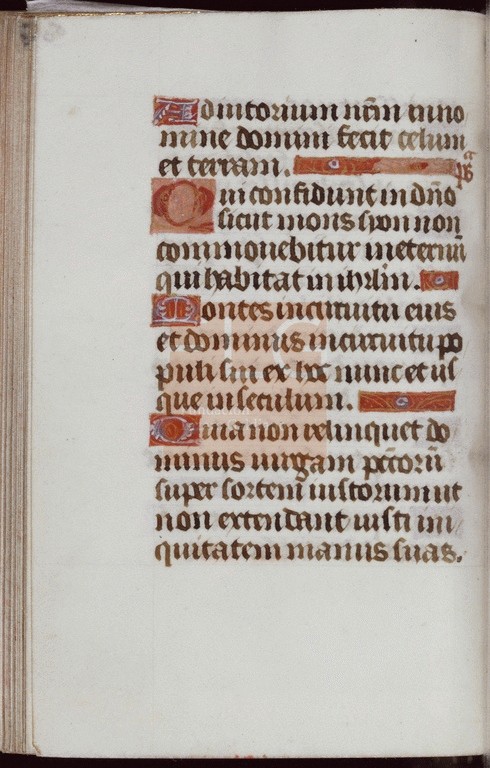 Adiutorium nrm in no
mine domini fecit celum
et terram. ps
Qui confidunt in dno
sicut mons syon non
commouebitur in eternu
qui habitat in ihrlm.
Montes in circuitu eius
et dominus in circuitu po
puli sui ex hoc nunc et us
que in seculum.
Quia non relinquet do
minus uirgam peccoru
super sortem iustorum ut
non extendant iusti ini
quitatem manus suas.